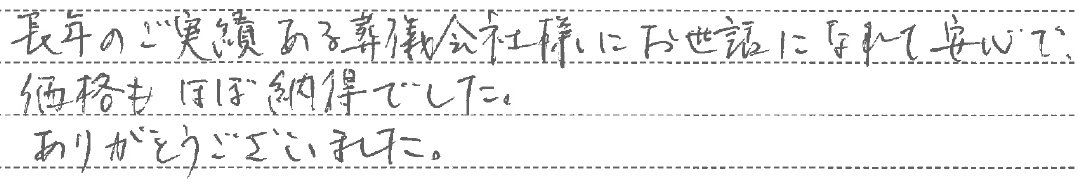 長年のご実績ある葬儀会社様にお世話になれて安心で、
価格もほぼ納得でした。
ありがとうございました。